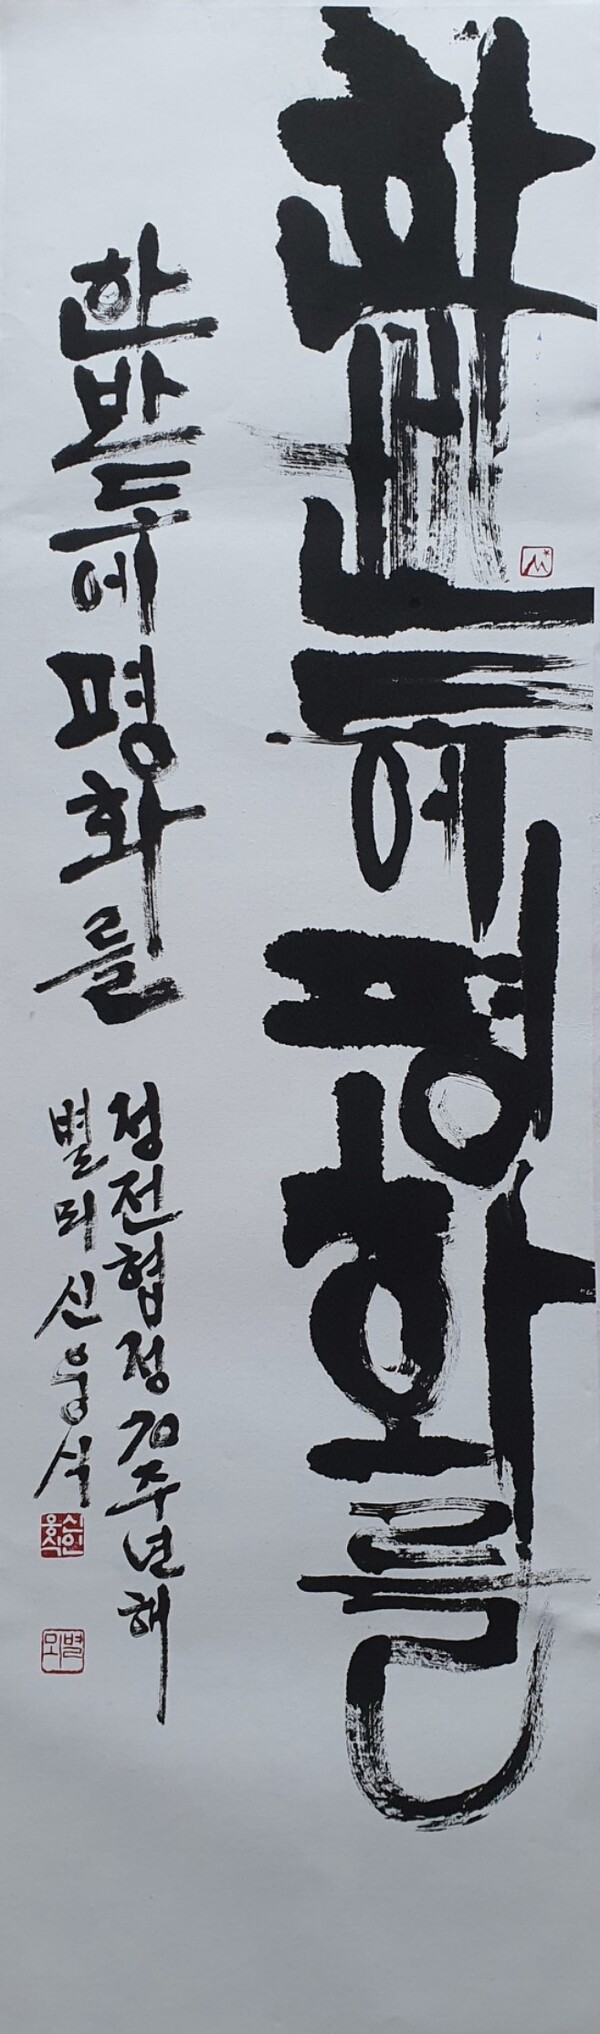 한반도에 평화를
한반도에 평화를
정전협정 70주년 해
별뫼 신웅식
신웅식인
별뫼